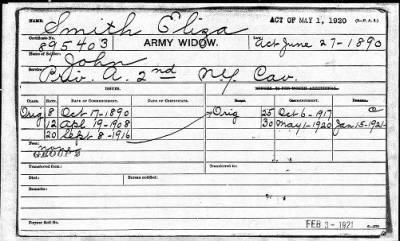 ACT OF MAY 1, 1920
NAME:
Smith Eliza
Certificate No.
895403
ARMY WIDOW.
Law:
Act June 27-1890
Name of Soldier:
John
Service:
Priv. A. 2nd N.Y. Cav.
ISSUES.
CLASS. RATE. DATE OF COMMENCEMENT. DATE OF CERTIFICATE. CLASS. RATE. COMMENCEMENT.
Orig 8 Oct 17-1890 Orig 25 Oct 6-1917
12 Apl 19-1908 30 May 1-1920 Jan 15-1921
20 Sept 8-1916
GROUP 3
Transferred to: Transferred to:
Died: Bureau notified:
Remarks:
Former Roll No.
FEB 3-1921